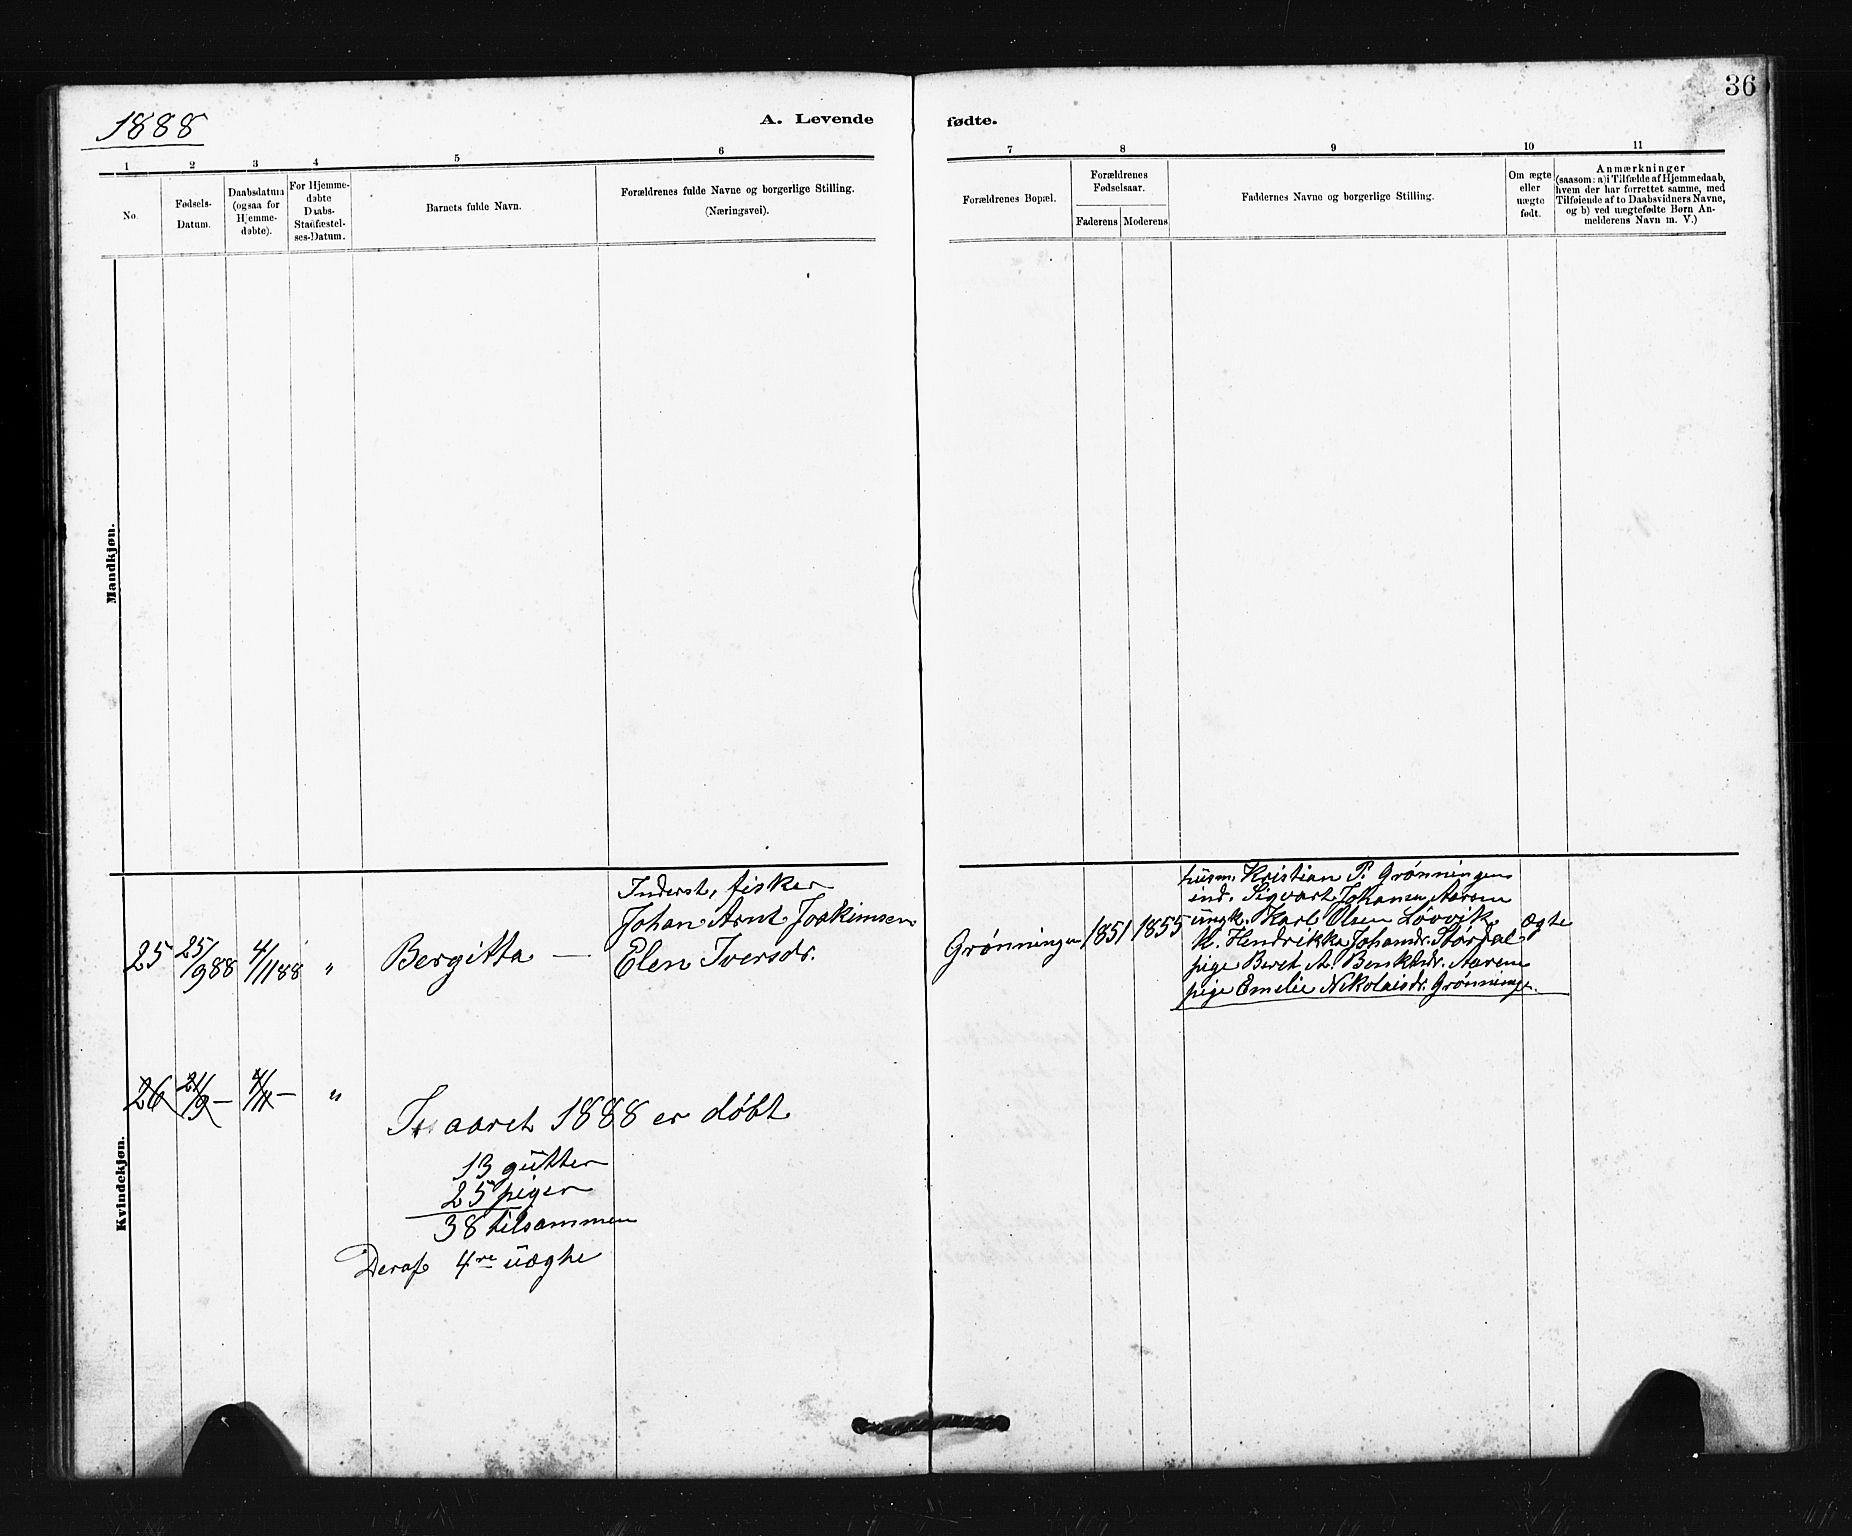 1888
A. Levende fødte.
36
1 2 3 4 5 6 7 8 9 10 11
No.
Fødsels-
Datum.
Daabsdatum
(ogsaa for
Hjemme-
døbte).
For Hjemme-
døbte
Daabs-
Stadfæstel-
ses-Datum.
Barnets fulde Navn.
Forældrenes fulde Navne og borgerlige Stilling.
(Næringsvei).
Forældrenes Bopæl.
Forældrenes
Fødselsaar.
Faderens Moderens
Faddernes Navne og borgerlige Stilling.
Om ægte
eller
uægte
født.
Anmærkninger
(saasom: a) i Tilfælde af Hjemmedaab,
hvem der har forrettet samme, med
Tilføiende af to Daabsvidners Navne,
og b) ved uægtefødte Børn An-
melderens Navn m. V.)
Mandkjøn.
25 25/9 88 4/11 88 " Bergitta —
Inderst, fisker
Johan Arnt Joakimsen
Elen Iversdr.
Grønningen 1851 1855
husm. Kristian P. Grønningen
ind. Sigvart Johansen Aarem
ungk. Karl Olsen Løvvik
K. Hendrikka Johansdr. Størdal
pige Beret A. Benktsdr. Aarem
pige Emelie Nikolaisdr. Grønninge.
Ægte
26 21/9 — 4/11 — "
Kvindekjøn.
I aaret 1888 er døbt
13 gutter
25 piger
38 tilsammen
Deraf 4re uægte